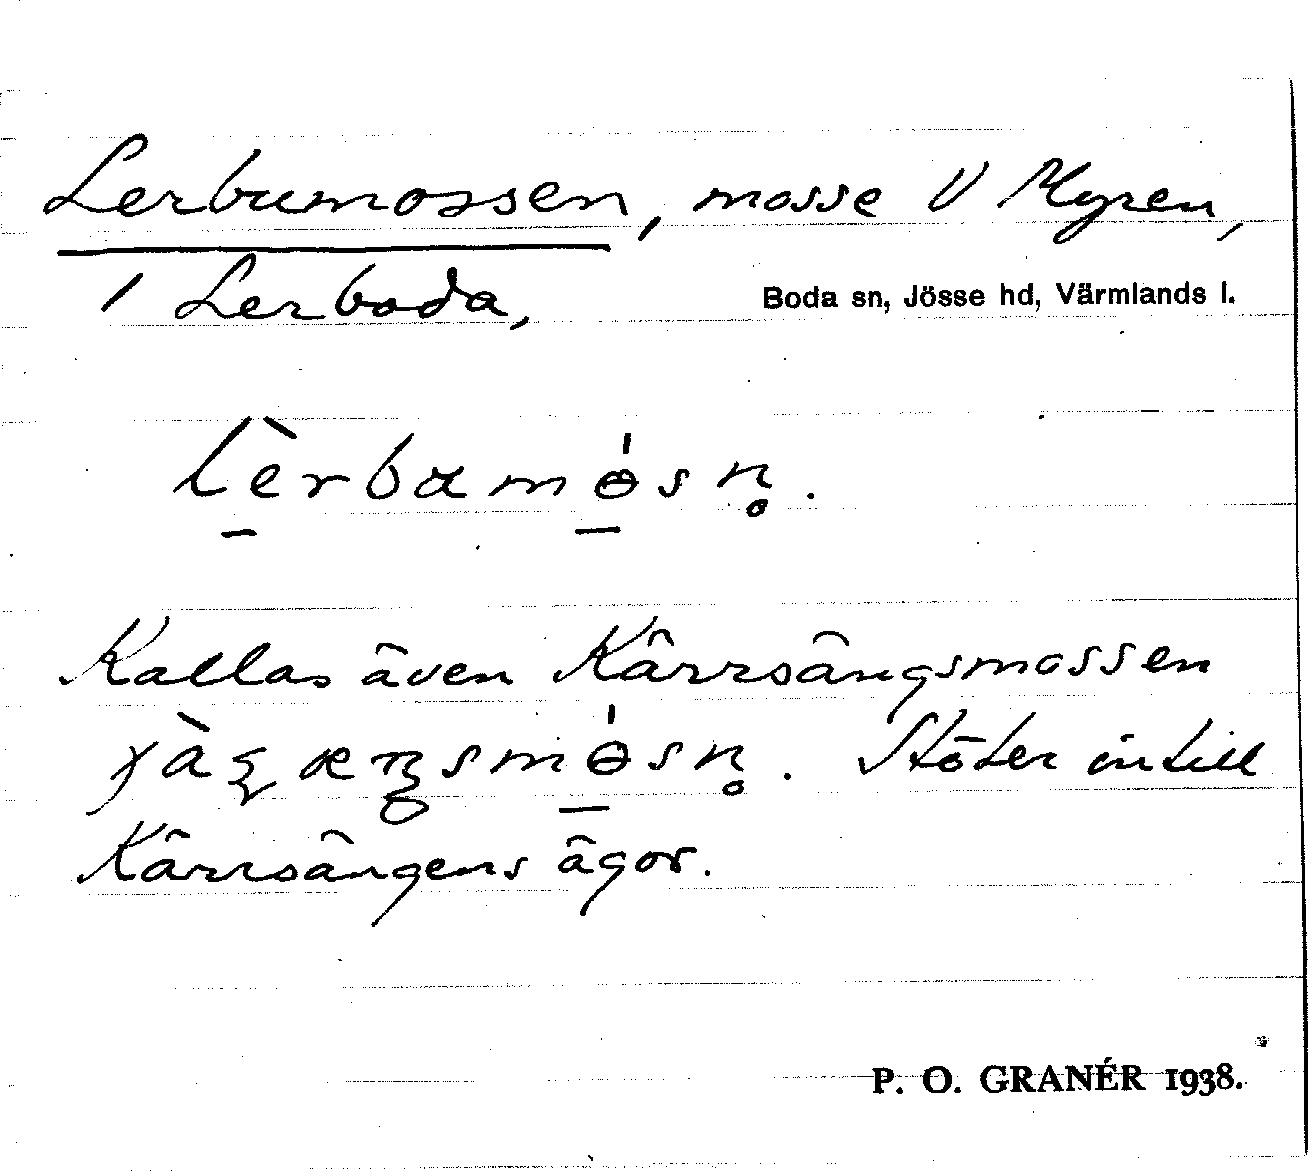 Lerbumossen, mosse V Myren,
1 Lerboda, Boda sn, Jösse hd, Värmlands l.
lèrbamɵ́sn̥.
Kallas även Kärrsängsmossen
mɵ́sn̥. Stöter intill
Kärrsängens ägor.
P. O. GRANÉR 1938.